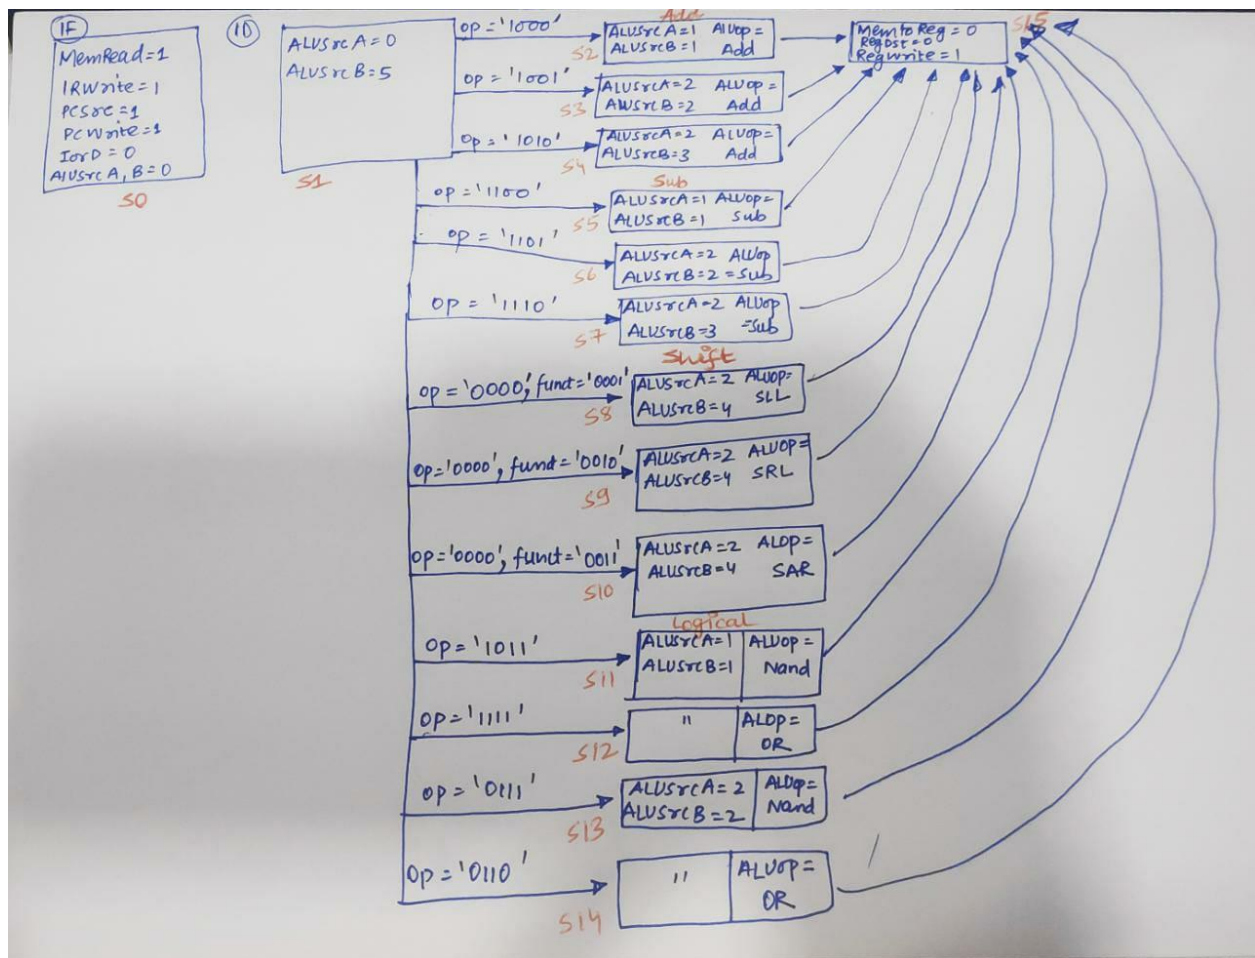 IF
MemRead=1
IRWrite=1
PCSrc=1
PCWrite=1
IorD=0
AluSrc A, B=0
S0
ID
ALUSrc A=0
ALUSrc B=5
S1
op='1000'
Add
S2
ALUSrc A=1 AlUop=
ALUSrc B=1 Add
op='1001'
S3
ALUSrcA=2 ALUop=
ALUSrcB=2 Add
op='1010'
S4
ALUSrcA=2 ALUop=
ALUSrcB=3 Add
op='1100'
Sub
S5
ALUSrcA=1 ALUop=
ALUSrcB=1 Sub
op='1101'
S6
ALUSrcA=2 ALUop
ALUSrcB=2 =Sub
op='1110'
S7
ALUSrcA=2 ALUop
ALUSrcB=3 =Sub
Shift
op='0000', funct='0001'
S8
ALUSrcA=2 ALUop=
ALUSrcB=4 SLL
op='0000', funct='0010'
S9
ALUSrcA=2 ALUOP=
ALUSrcB=4 SRL
op='0000', funct='0011'
S10
ALUSrcA=2 ALOP=
ALUSrcB=4 SAR
Logical
op='1011'
S11
ALUSrcA=1 ALUop=
ALUSrcB=1 Nand
op='1111'
S12
" ALOP=
OR
op='0111'
S13
ALUSrcA=2 ALUop=
ALUSrcB=2 Nand
op='0110'
S14
" ALUop=
OR
MemtoReg=0
RegDst=0
Regwrite=1
S15